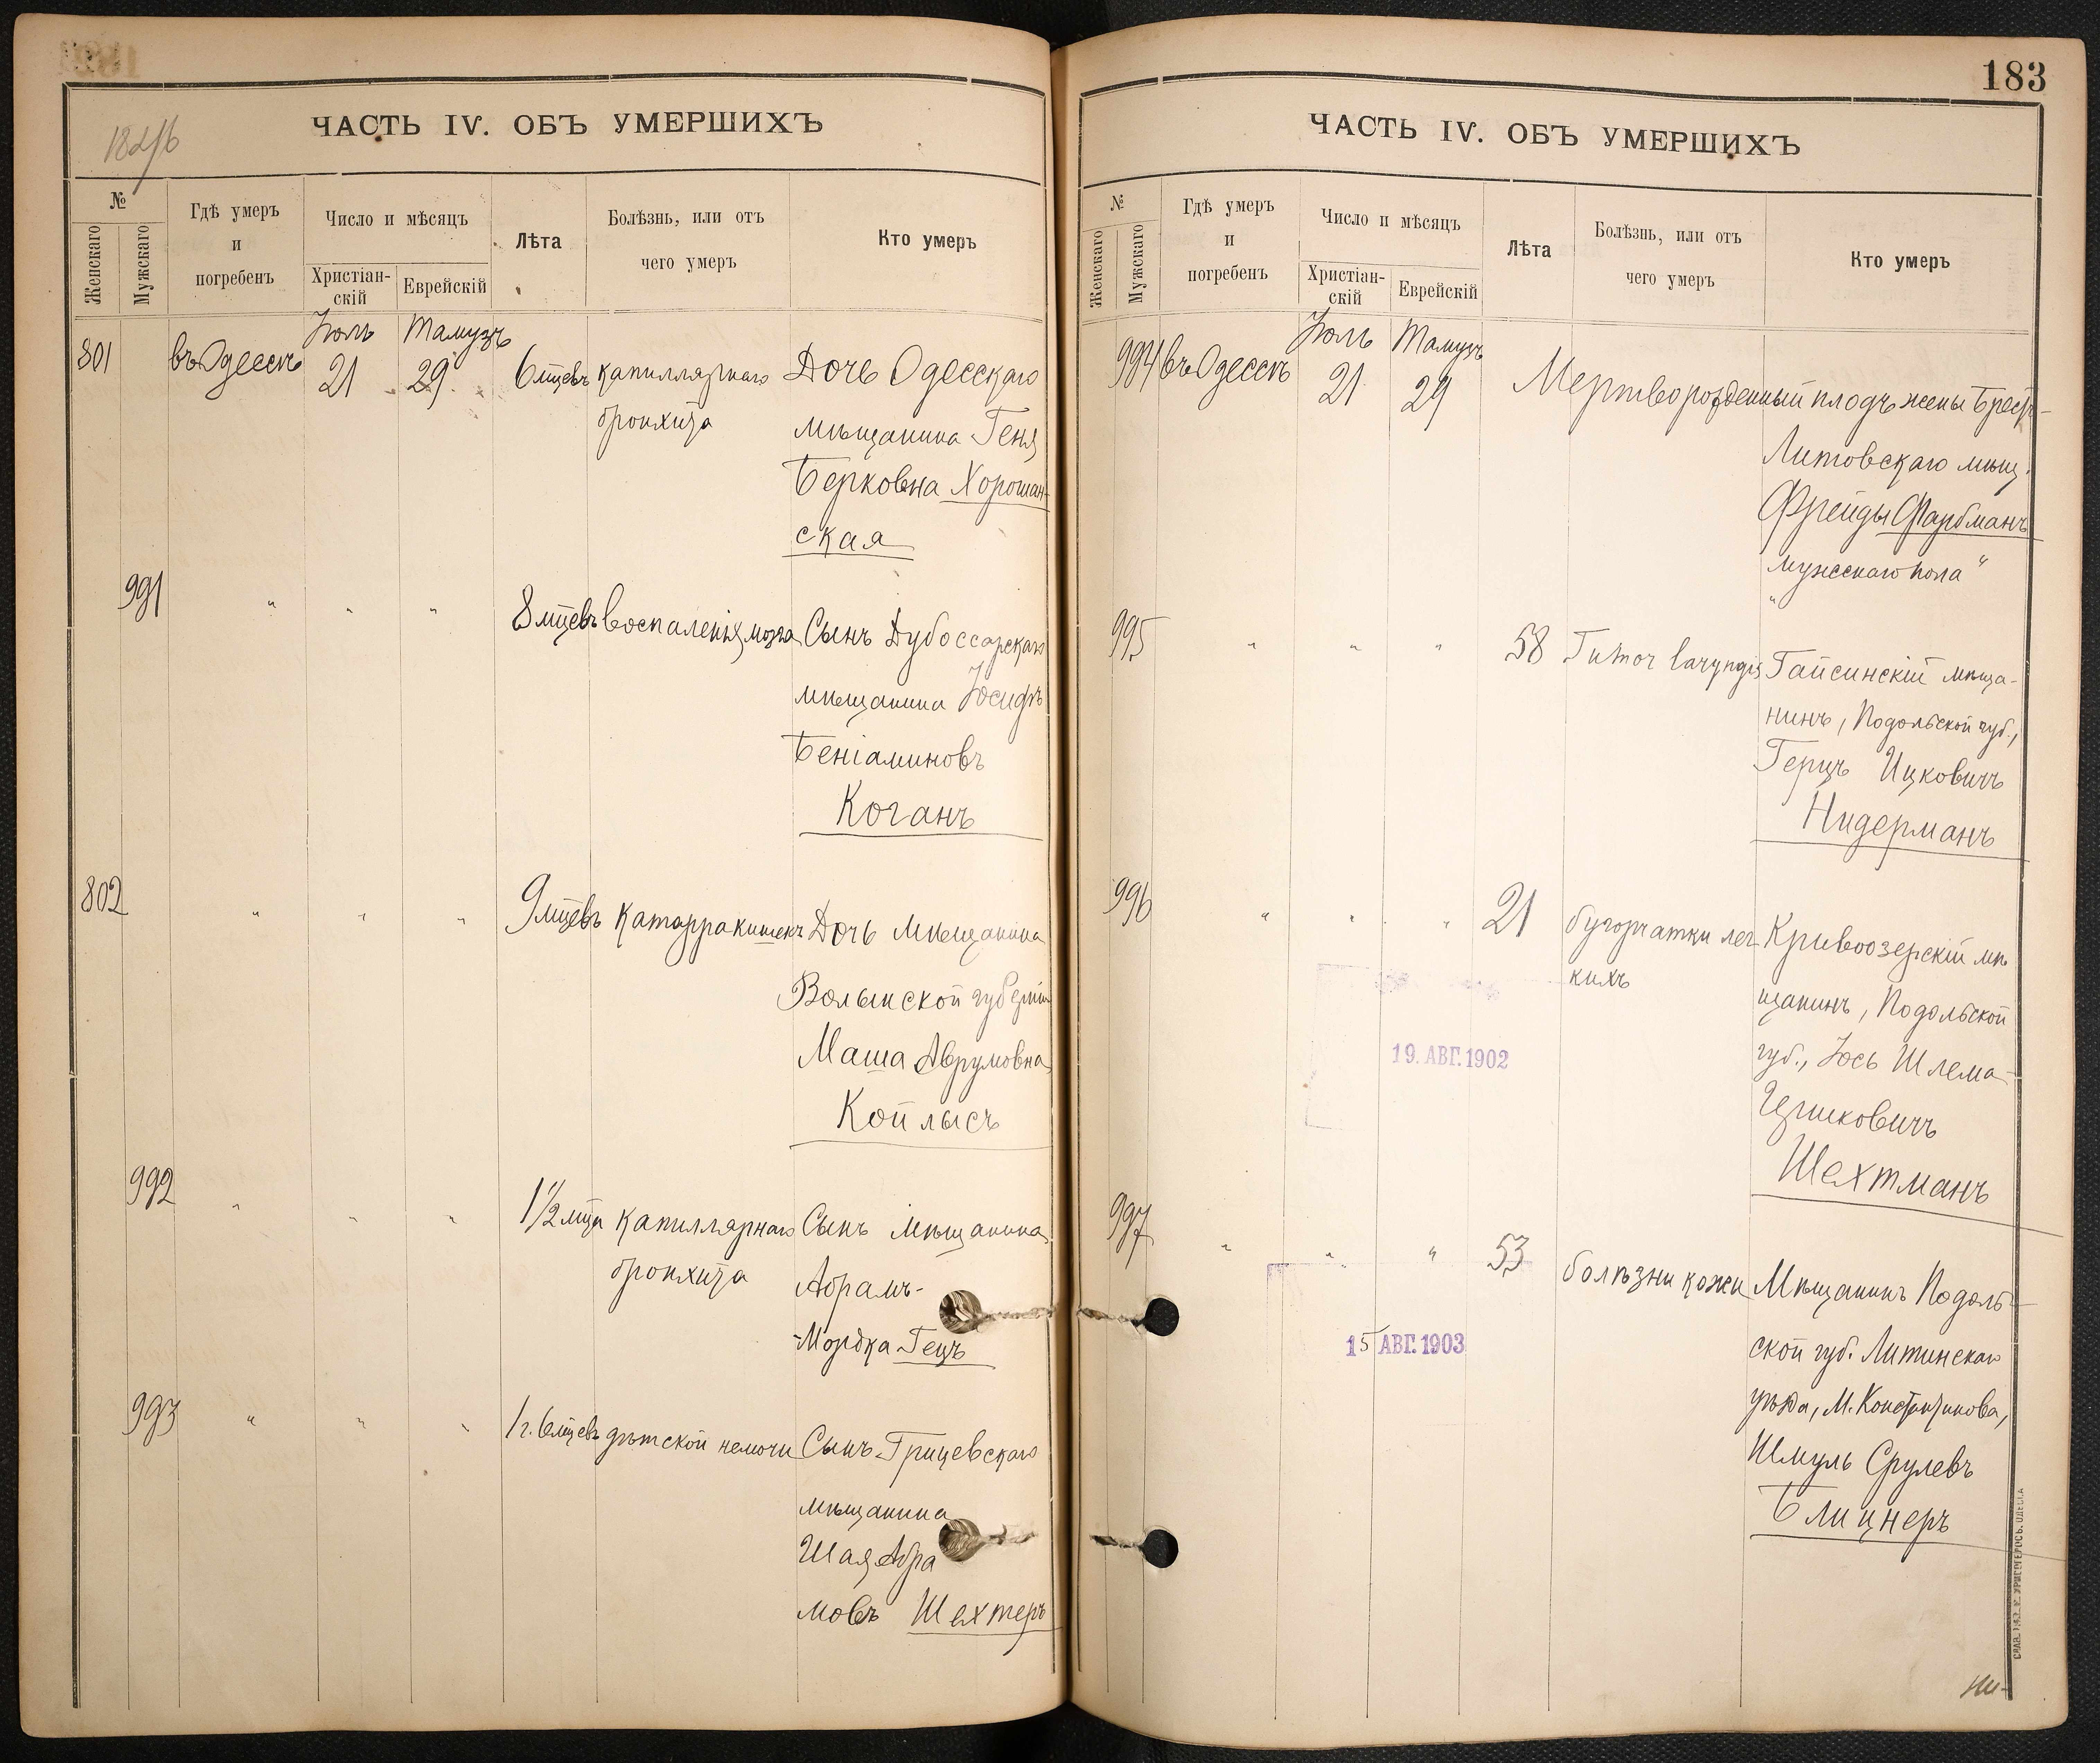 ЧАСТЬ IV. ОБЪ УМЕРШИХЪ
№
Женскаго
Мужскаго
Гдѣ умеръ
и
погребенъ
Число и мѣсяцъ
Христіан-
скій
Еврейскій
Лѣта
Болѣзнь, или отъ
чего умеръ
Кто умеръ
801
въ Одессѣ
Іюль
21
Тамузъ
29
6 мцевъ
капиллярнаго
бронхита
Дочь Одесскаго
мѣщанина Геня
Берковна Хорошан-
ская
991
" " "
8 мцевъ
воспаленія мозга
Сынъ Дубоссарскаго
мѣщанина Іосифъ
Беніаминовъ
Коганъ
802
" " "
9 мцевъ
катарра кишекъ
Дочь мѣщанина
Волынской губерніи
Маша Аврумовна
Койлысъ
992
" " "
1 1/2 мца
капиллярнаго
бронхита
Сынъ мѣщанина
Абрамъ-
-Мордка Гецъ
993
" " "
1 г. 6 мцевъ
дѣтской немочи
Сынъ Грицевскаго
мѣщанина
Шая Абра
мовъ Шехтеръ
183
ЧАСТЬ IV. ОБЪ УМЕРШИХЪ
№
Женскаго
Мужскаго
Гдѣ умеръ
и
погребенъ
Число и мѣсяцъ
Христіан-
скій
Еврейскій
Лѣта
Болѣзнь, или отъ
чего умеръ
Кто умеръ
994
въ Одессѣ
Іюль
21
Тамузъ
29
Мертворожденный плодъ жены Брест-
Литовскаго мѣщ.
Фрейды Фарбманъ
"мужескаго пола"
995
" " "
58
Tumor laryngis
Гайсинскій мѣща-
нинъ, Подольской губ.,
Герцъ Ицковичъ
Нидерманъ
996
" " "
21
бугорчатки лег
кихъ
Кривоозерскій мѣ
щанинъ, Подольской
губ., Іось Шлема-
Шехтманъ
19. АВГ. 1902
997
" " "
53
болѣзни кожи
Мѣщанинъ Подоль-
ской губ. Литинскаго
уѣзда, М. Константинова,
Шмуль Срулевъ
Блицнеръ
15 АВГ. 1903